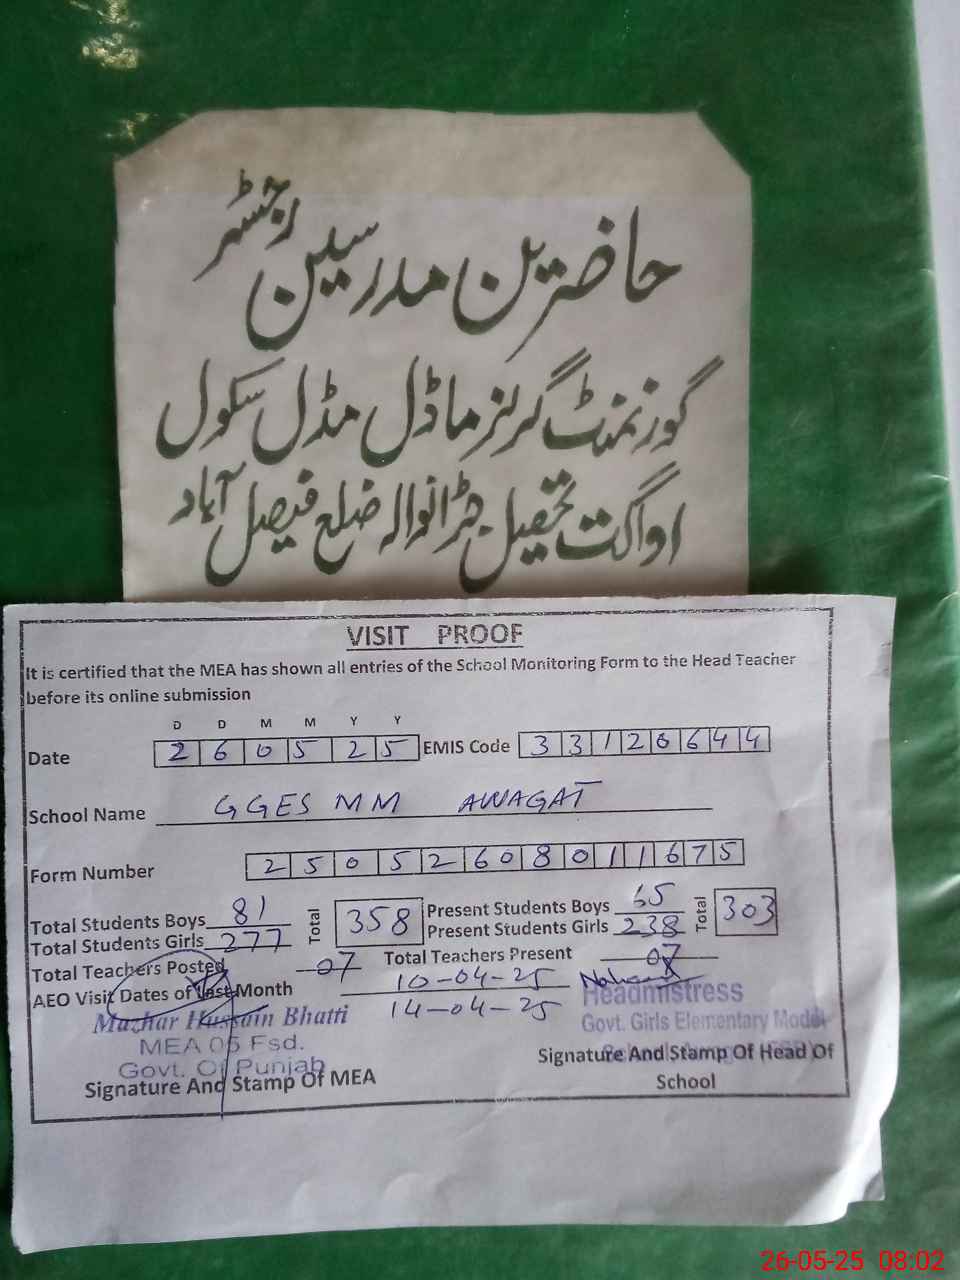 رجسٹر
حاضرین مدرسین
گورنمنٹ گرلز ماڈل مڈل سکول
اواگت تحصیل جڑانوالہ ضلع فیصل آباد
VISIT PROOF
It is certified that the MEA has shown all entries of the School Monitoring Form to the Head Teacher
before its online submission
D D M M Y Y
Date 2 6 0 5 2 5 EMIS Code 3 3 1 2 0 6 4 4
School Name GGES MM AWAGAT
Form Number 2 5 0 5 2 6 0 8 0 1 1 6 7 5
Total Students Boys 81 Total 358 Present Students Boys 65 Total 303
Total Students Girls 277 Present Students Girls 238
Total Teachers Posted 07 Total Teachers Present 07
AEO Visit Dates of Last Month 10-04-25
14-04-25
Headmistress
Mazhar Hussain Bhatti Govt. Girls Elementary Model
MEA 05 Fsd.
Govt. Of Punjab
Signature And Stamp Of MEA Signature And Stamp Of Head Of
School
26-05-25 08:02